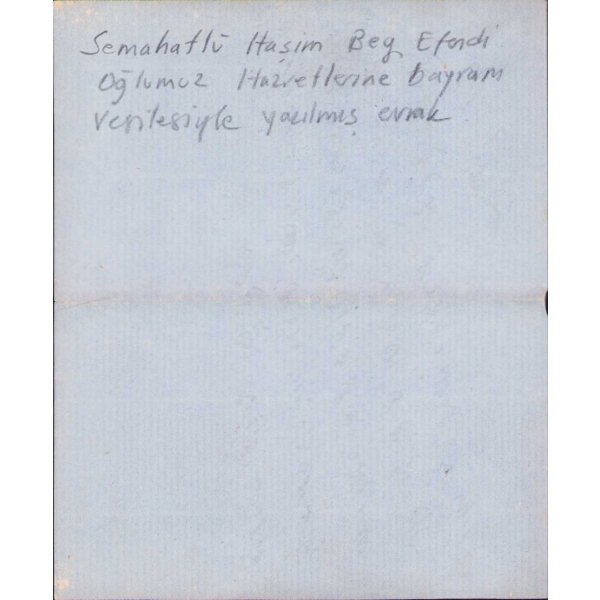 Semahatlü Haşim Beg Efendi
Oğlumuz Hazretlerine bayram
vesilesiyle yazılmış evrak